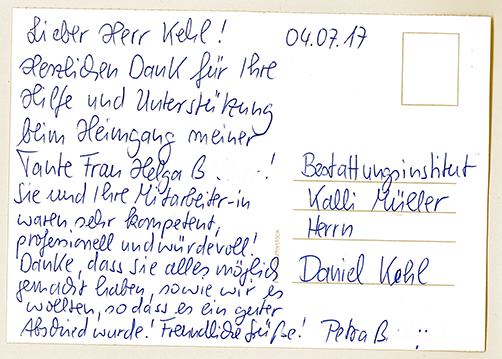 Lieber Herr Kehl!
04.07.17
Herzlichen Dank für Ihre
Hilfe und Unterstützung
beim Heimgang meiner
Tante Frau Helga B. !
Sie und Ihre Mitarbeiter-in
waren sehr kompetent,
professionell und würdevoll!
Danke, dass sie alles möglich
gemacht haben, sowie wir es
wollten, so dass es ein guter
Abschied wurde! Freundliche Grüße! Petra B.
Bestattungsinstitut
Kalli Müller
Herrn
Daniel Kehl